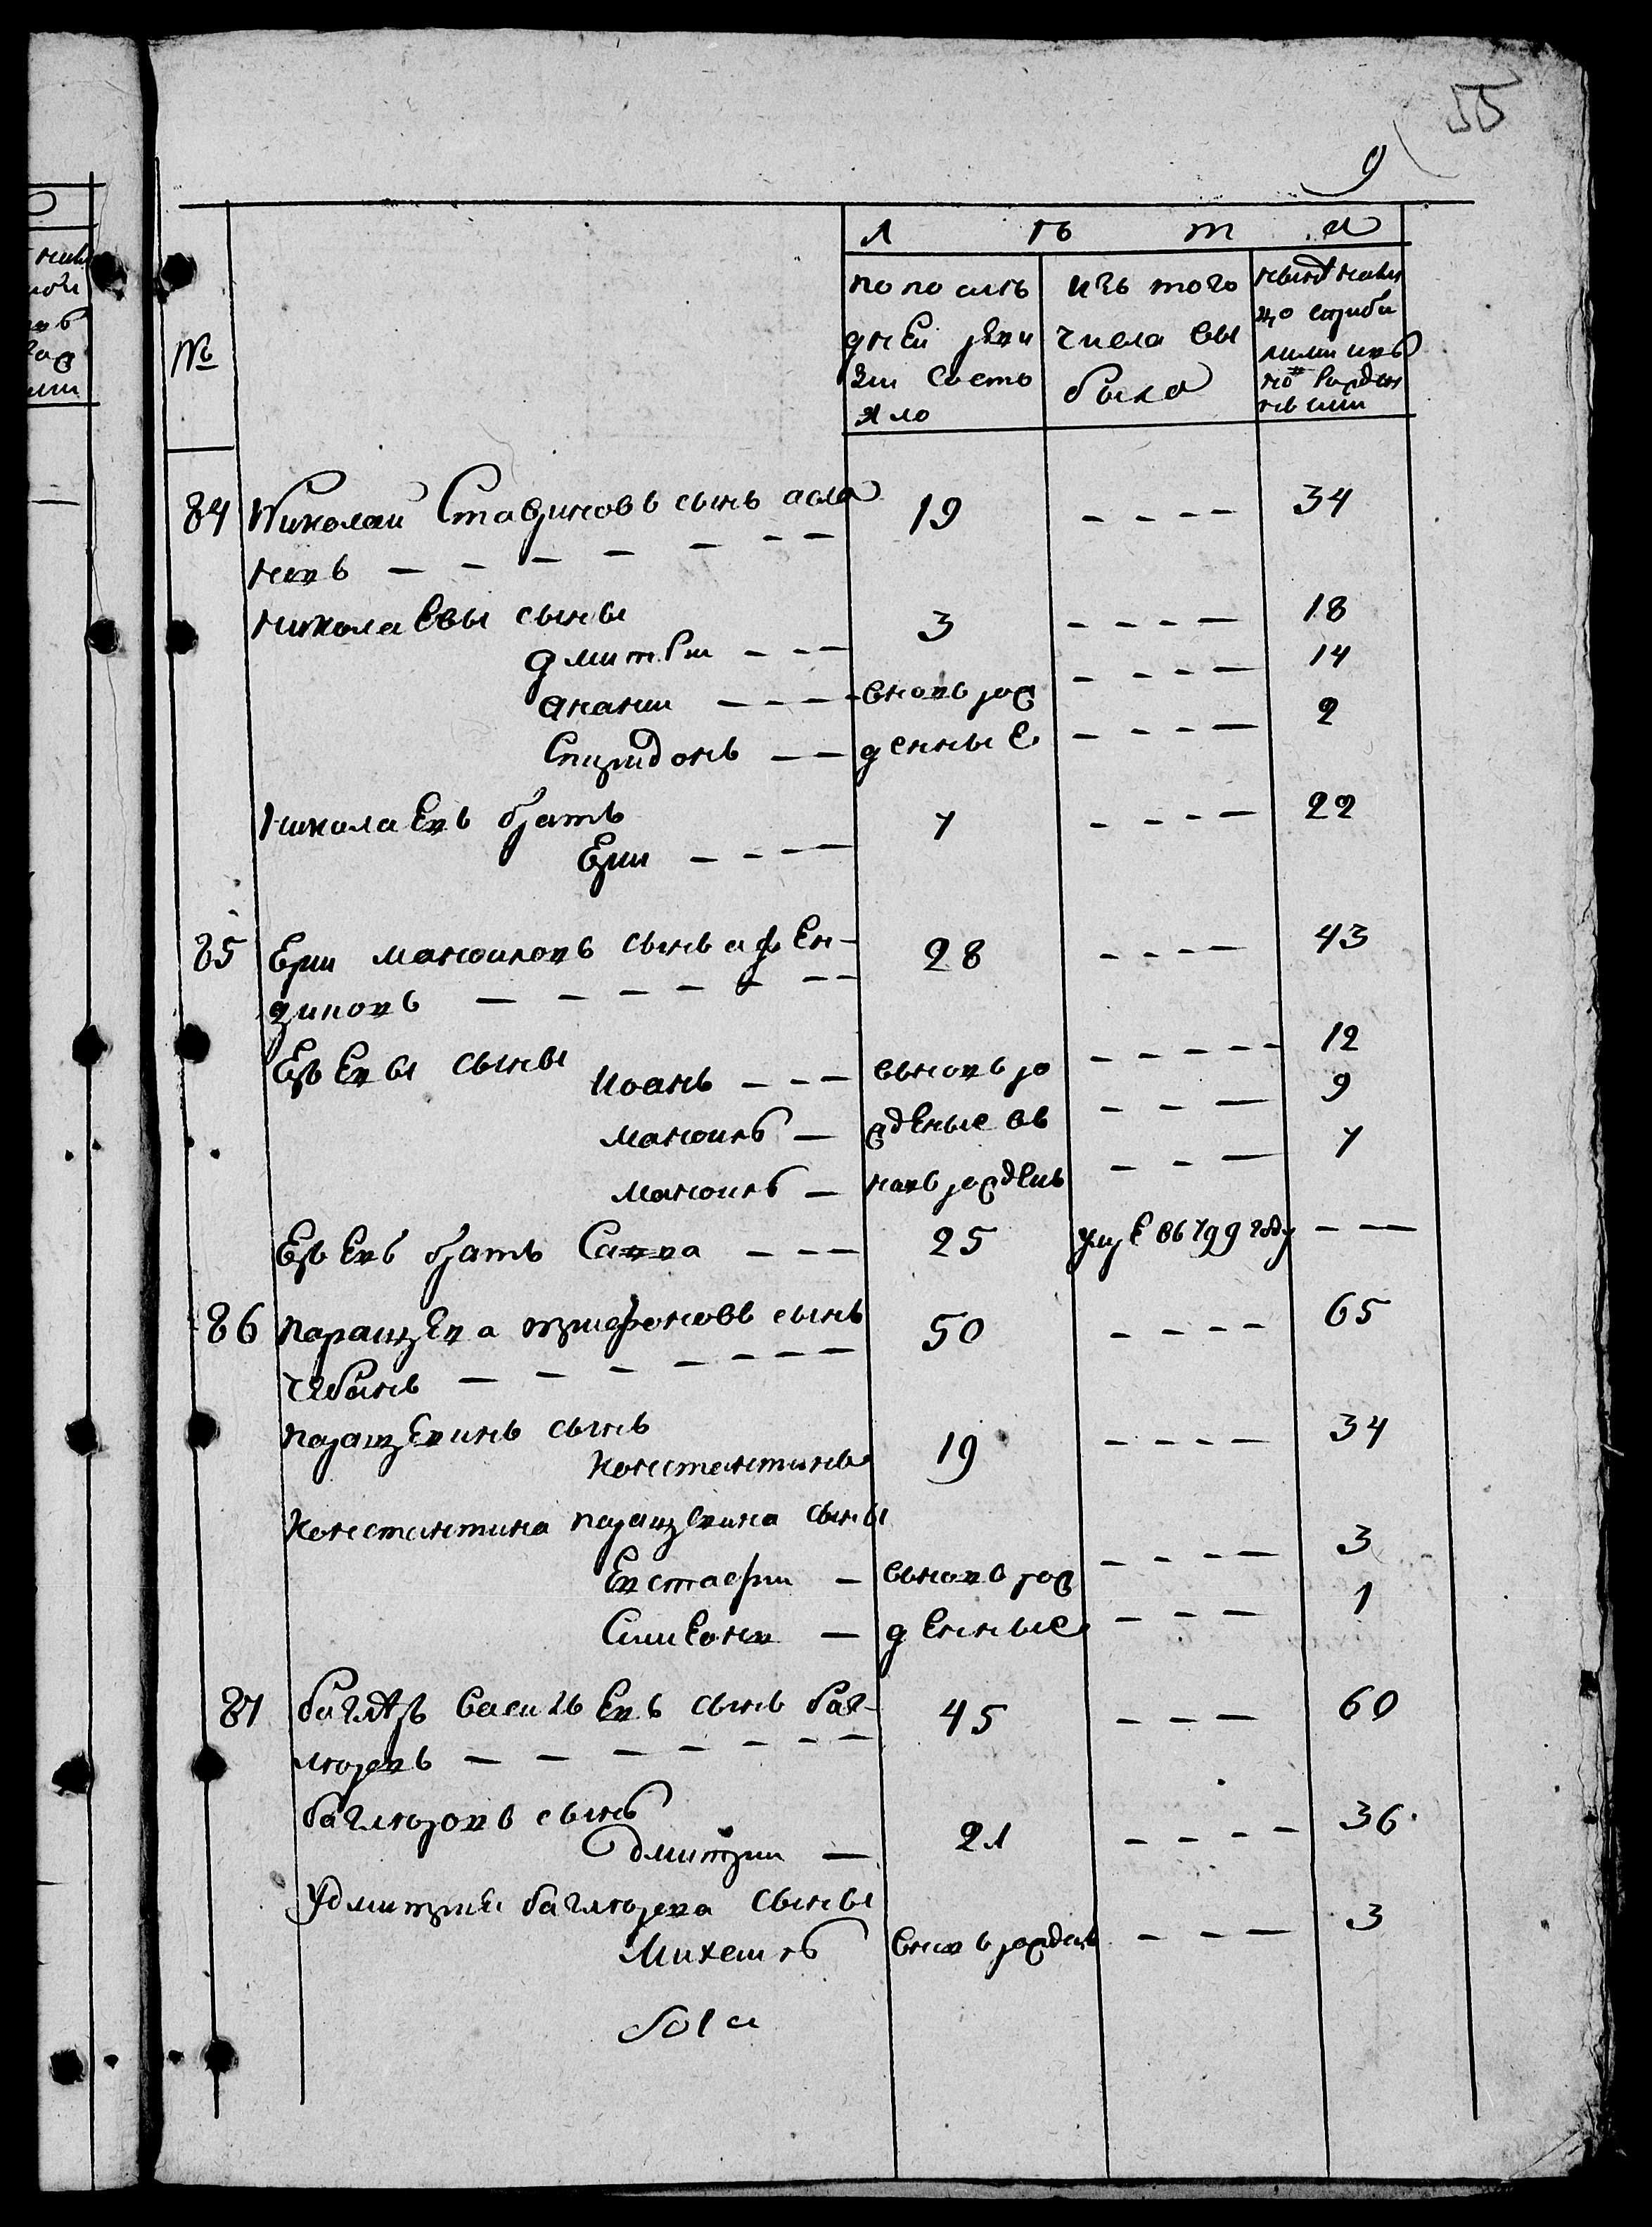 55
9
№
Л Ѣ Т А
по послѣ
дней реви
зіи состо
яло
изъ того
числа вы
было
нынѣ налицо
84 Николай Ставриновъ сынъ асла
новъ — — — — — — — 19 - - - - 34
николаевы сыны
дмитрій - - - 3 - - - - 18
ананій - - - - вновь рож - - - - 14
Спиридонъ - - денные - - - - 2
николаевъ братъ
Ерій - - - - 7 - - - - 22
85 Ерій манойловъ сынъ афен-
диковъ — — — — — — — 28 - - - - 43
Еръевы сыны Иоанъ - - - вьновь ро - - - - - 12
манойлъ — жденые въ - - — 9
манойлъ — новь рожденъ - - — 7
Еръевъ братъ Савва - - - 25 умре въ 799 году - —
86 параскева трифоновъ сынъ
чабанъ — — — — — — — 50 - - - - 65
параскевинъ сынъ
константинъ 19 - - - - 34
константина параскевина сыны
Евстафій — вьновь рож - - - - 3
Симеонъ — денные - - — 1
87 баглыръ Васильевъ сынъ баг-
люревъ — — — — — — — 45 - - — 60
баглюровъ сынъ
дмитрій — 21 - - - - 36
У дмитрия баглюрева сыны
Михаилъ вновь рожденъ - - — 3